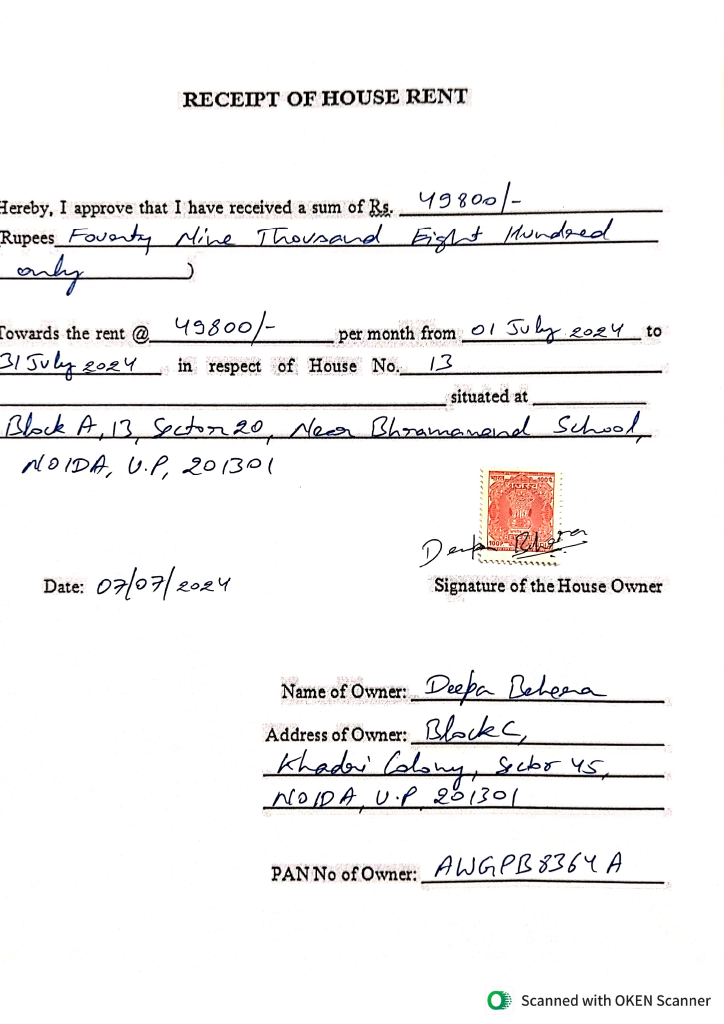 RECEIPT OF HOUSE RENT
Hereby, I approve that I have received a sum of Rs. 49800/-
Rupees Fourty Nine Thousand Eight Hundred
only )
Towards the rent @ 49800/- per month from 01 July 2024 to
31 July 2024 in respect of House No. 13
situated at
Block A, 13, Sector 20, Near Bhramanand School,
NOIDA, U.P, 201301
Deepa Behera
Date: 07/07/2024 Signature of the House Owner
Name of Owner: Deepa Behera
Address of Owner: Block C,
Khadri Colony, Sector 45,
NOIDA, U.P 201301
PAN No of Owner: AWGPB8364A
Scanned with OKEN Scanner